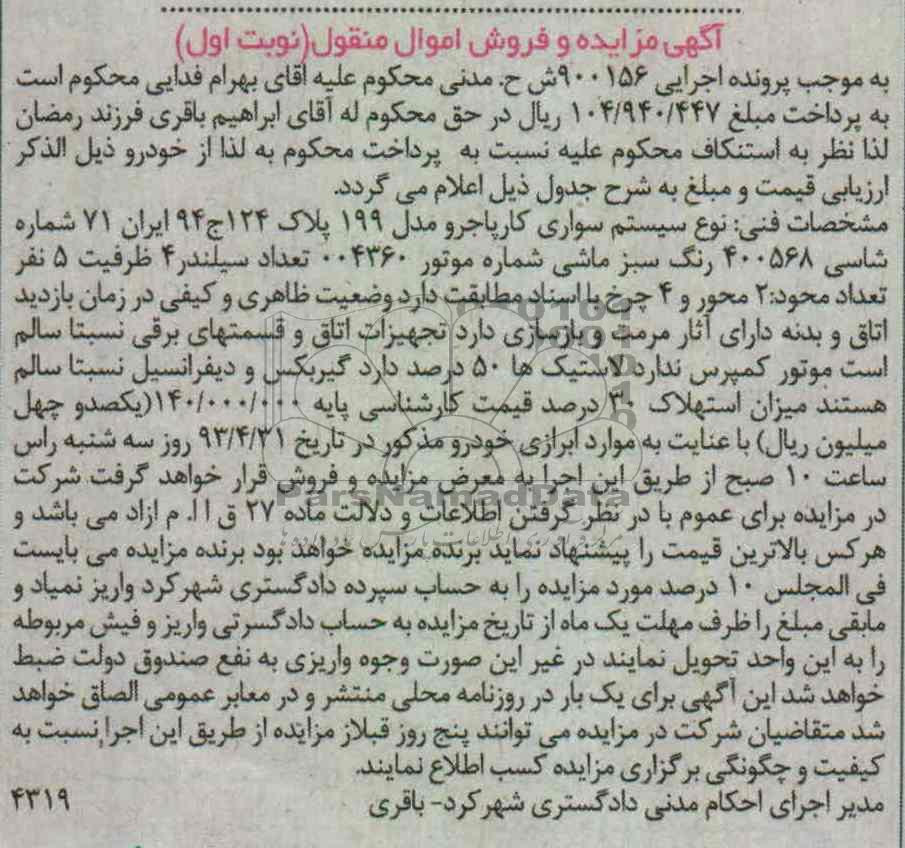 آگهی مزایده و فروش اموال منقول(نوبت اول)
به موجب پرونده اجرایی ۹۰۰۱۵۶ش ح. مدنی محکوم علیه اقای بهرام فدایی محکوم است
به پرداخت مبلغ ۱۰۴/۹۴۰/۴۴۷ ریال در حق محکوم له آقای ابراهیم باقری فرزند رمضان
لذا نظر به استنکاف محکوم علیه نسبت به پرداخت محکوم به لذا از خودرو ذیل الذکر
ارزیابی قیمت و مبلغ به شرح جدول ذیل اعلام می گردد.
مشخصات فنی: نوع سیستم سواری کارپاجرو مدل ۱۹۹ پلاک ۱۲۴ج۹۴ ایران ۷۱ شماره
شاسی ۴۰۰۵۶۸ رنگ سبز ماشی شماره موتور ۰۰۴۳۶۰ تعداد سیلندر۴ ظرفیت ۵ نفر
تعداد محود:۲ محور و ۴ چرخ با اسناد مطابقت دارد وضعیت ظاهری و کیفی در زمان بازدید
اتاق و بدنه دارای آثار مرمت و بازسازی دارد تجهیزات اتاق و قسمتهای برقی نسبتا سالم
است موتور کمپرس ندارد لاستیک ها ۵۰ درصد دارد گیربکس و دیفرانسیل نسبتا سالم
هستند میزان استهلاک ۳۰ درصد قیمت کارشناسی پایه ۱۴۰/۰۰۰/۰۰۰(یکصدو چهل
میلیون ریال) با عنایت به موارد ابرازی خودرو مذکور در تاریخ ۹۳/۴/۳۱ روز سه شنبه راس
ساعت ۱۰ صبح از طریق این اجرا به معرض مزایده و فروش قرار خواهد گرفت شرکت
در مزایده برای عموم با در نظر گرفتن اطلاعات و دلالت ماده ۲۷ ق ا ا. م ازاد می باشد و
هرکس بالاترین قیمت را پیشنهاد نماید برنده مزایده خواهد بود برنده مزایده می بایست
فی المجلس ۱۰ درصد مورد مزایده را به حساب سپرده دادگستری شهرکرد واریز نمیاد و
مابقی مبلغ را ظرف مهلت یک ماه از تاریخ مزایده به حساب دادگسرتی واریز و فیش مربوطه
را به این واحد تحویل نمایند در غیر این صورت وجوه واریزی به نفع صندوق دولت ضبط
خواهد شد این آگهی برای یک بار در روزنامه محلی منتشر و در معابر عمومی الصاق خواهد
شد متقاضیان شرکت در مزایده می توانند پنج روز قبلاز مزایده از طریق این اجرا نسبت به
کیفیت و چگونگی برگزاری مزایده کسب اطلاع نمایند.
مدیر اجرای احکام مدنی دادگستری شهرکرد- باقری ۴۳۱۹
ParsNamadData